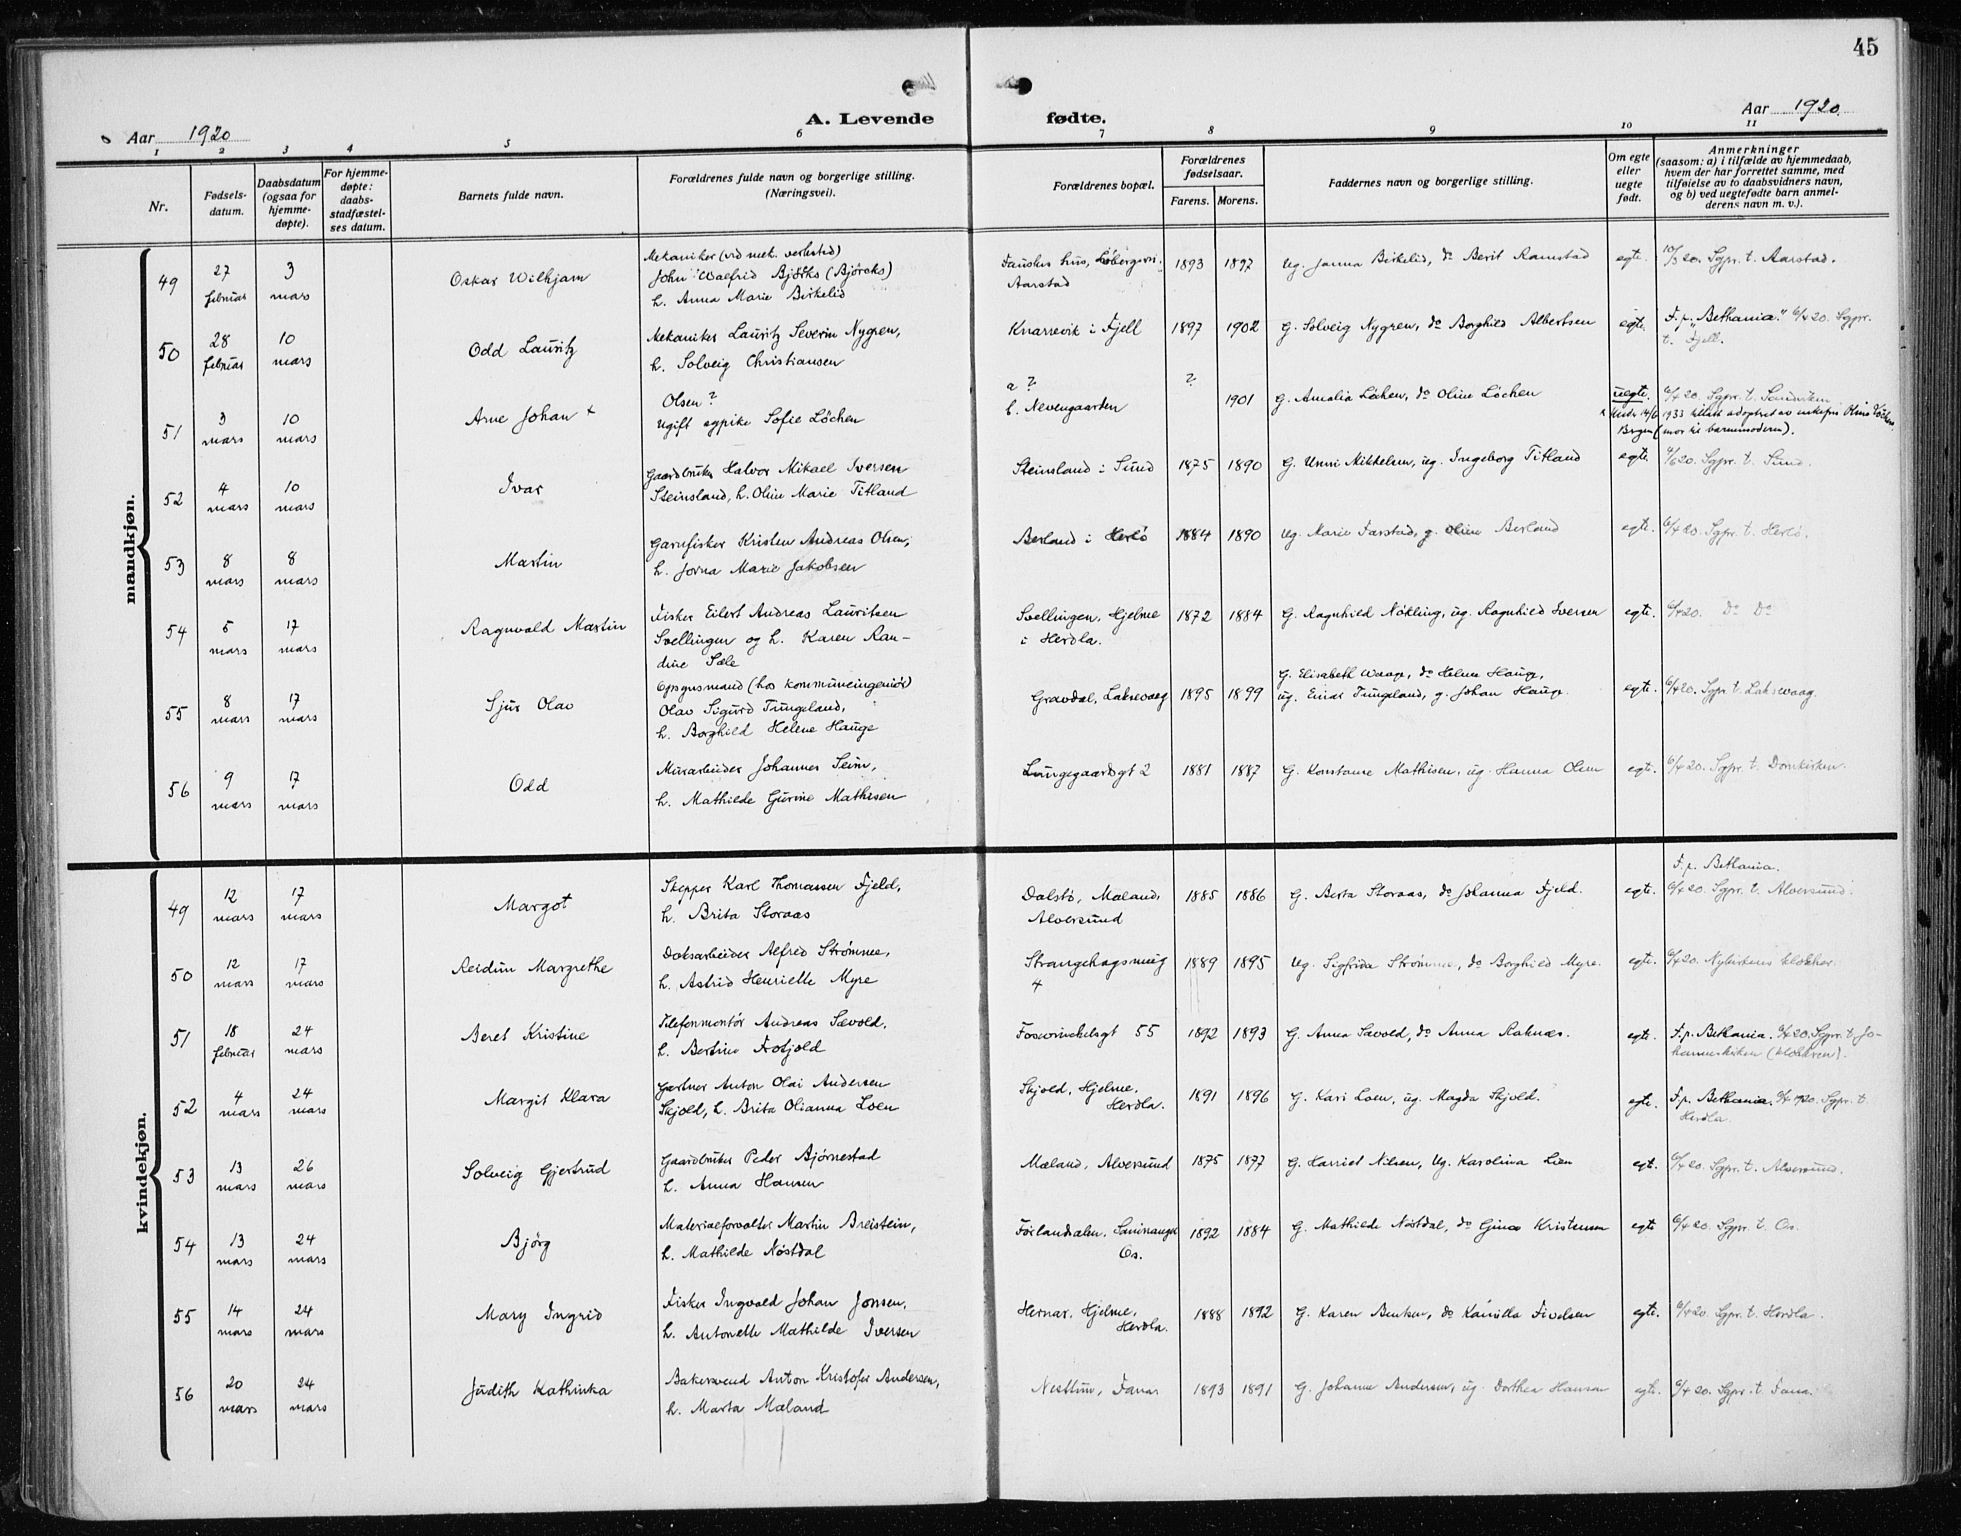 45
Aar 1920
A. Levende
fødte.
Aar 1920.
1 2 3 4 5 6 7 8 9 10 11
Nr.
Fødsels-
datum.
Daabsdatum
(ogsaa for
hjemme-
døpte).
For hjemme-
døpte:
daabs-
stadfæstel-
ses datum.
Barnets fulde navn.
Forældrenes fulde navn og borgerlige stilling.
(Næringsvei).
Forældrenes bopæl.
Forældrenes
fødselsaar.
Farens. Morens.
Faddernes navn og borgerlige stilling.
Om egte
eller
uegte
født.
Anmerkninger
(saasom: a) i tilfælde av hjemmedaab,
hvem der har forrettet samme, med
tilføielse av to daabsvidners navn,
og b) ved uegtefødte barn anmel-
derens navn m. v.).
mandkjøn.
49
27
februar
3
mars
Oskar Wilhjam
Mekaniker (ved mek. verksted)
John Walfrid Bjørks (Björeks)
h. Anna Marie Birkelid
Aarstad
1893 1897
Ug. Janna Birkelid, do Berit Ramstad
egte.
10/3 20. Sgpr. t. Aarstad.
50
28
februar
10
mars
Odd Lauritz
Mekaniker Lauritz Severin Nygren,
h. Solveig Christiansen
Knarrevik i Fjell
1897 1902
G. Solveig Nygren, do Borghild Albertsen
egte.
F. p. "Bethania." 6/4 20. Sgpr.
t. Fjell.
51
3
mars
10
mars
Arne Johan x
Olsen?
Ugift sypike Sofie Löchen
a ?
h. Nevengaarden
?
1901
G. Amalia Löchen, do Oline Löchen
uegte.
6/4 20 Sgpr. t. Sandviken
1933 adoptret av enkefru Oline Löchen
Bergen (mor til barnemoderen).
52
4
mars
10
mars
Ivar
Gaardbruker Halvor Mikael Iversen
Steinsland, h. Oline Marie Titland
Steinsland i Sund
1875 1890
G. Unni Mikkelsen, ug. Ingeborg Titland
egte.
20. Sgpr. t. Sund.
53
8
mars
8
mars
Martin
Garnfisker Kristen Andreas Olsen,
h. Jorna Marie Jakobsen
Berland i Herlö
1884 1890
Ug. Marie Farstad, g. Oline Berland
egte.
6/4 20. Sgpr. t. Herlö.
54
5
mars
17
mars
Ragnvald Martin
Fisker Eilert Andreas Lauritsen
Svellingen og h. Karen Ran-
dine Sæle
Svellingen, Hjelme
i Herdla.
1872 1884
G. Ragnhild Nökling, ug. Ragnhild Iversen
egte.
6/4 20. do do
55
8
mars
17
mars
Sjur Olav
Opsynsmand (hos kommuneingeniör)
Olav Sigurd Tungeland,
h. Borghild Helene Hauge
Gravdal, Laksevaag
1895 1899
G. Elisabeth Waage, do Helene Hauge,
ug. Einar Tungeland, g. Johan Hauge.
egte.
6/4 20. Sgpr. t. Laksevaag.
56
9
mars
17
mars
Odd
Murarbeider Johannes Seim,
h. Mathilde Gurine Mathisen
Lungegaardsgt 2
1881 1887
G. Konstanse Mathisen, ug. Hanna Olsen
egte.
6/4 20. Sgpr. t. Domkirken.
kvindekjøn.
49
12
mars
17
mars
Margot
Skipper Karl Thomassen Fjeld,
h. Brita Storaas
Dalstö, Mæland,
Alversund
1885 1886
G. Berta Storaas, do Johanna Fjeld.
egte.
F. p. Bethania.
6/4 20. Sgpr. t. Alversund.
50
12
mars
17
mars
Reidun Margrethe
Doksarbeider Alfred Strømme,
h. Astrid Henriette Myre
Strangehagsmug
4
1889 1895
Ug. Sigfrida Strømme, do Borghild Myre.
egte.
6/4 20. Nykirkens klokker.
51
18
februar
24
mars
Beret Kristine
Telefonmontör Andreas Sævold,
h. Bertine Fotjold
Fosswinckelsgt 55
1892 1893
G. Anna Sævold, do Anna Raknæs.
egte.
F. p. Bethania. 6/4 20. Sgpr. t. Jo-
hanneskirken (klokkeren).
52
4
mars
24
mars
Margit Klara
Gartner Anton Olai Andersen
Skjold, h. Brita Olianna Loen
Skjold, Hjelme,
Herdla.
1891 1896
G. Kari Loen, ug. Magda Skjold.
egte.
F. p. Bethania. 6/4 1920. Sgpr. t.
Herdla.
53
13
mars
26
mars
Solveig Gjertrud
Gaardbruker Peder Bjørnestad
h. Anna Hansen
Mæland, Alversund
1875 1877
G. Harriet Nilsen, Ug. Karolina Lien
egt.
6/4 20. Sgpr. t. Alversund.
54
13
mars
24
mars
Bjørg
Materialforvalter Martin Breistein,
h. Mathilde Nöstdal
Os.
1892 1884
G. Mathilde Nöstdal, do Gina Kristensen
egte
6/4 20. Sgpr. t. Os.
55
14
mars
24
mars
Mary Ingrid
Fisker Ingvald Johan Jonsen,
h. Antonette Mathilde Iversen
Hernar, Hjelme,
Herdla.
1888 1892
G. Karen Bentsen, do Kamilla Tivelsen
egte.
6/4 20. Sgpr. t. Herdla.
56
20
mars
24
mars
Judith Kathinka
Bakersvend Anton Kristofer Andersen,
h. Marta Mæland
Nesttun, Fana
1893 1891
G. Johanna Andersen, ug. Dorthea Hansen
egte.
6/4 20. Sgpr. t. Fana.